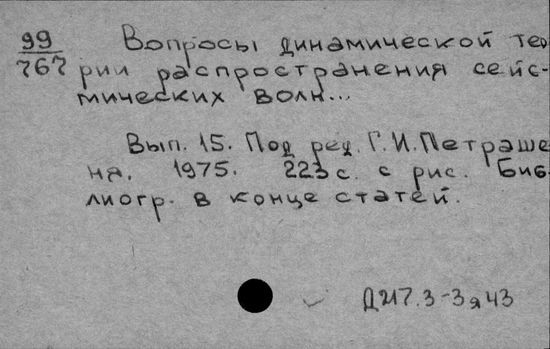 99
767
Вопросы динамической тео
рии распространения сейс-
мических волн...
Вып. 15. Под ред. Г.И.Петраше
ня. 1975. 223 с. с рис. Биб
лиогр. в конце статей.
Д217.3-3я43